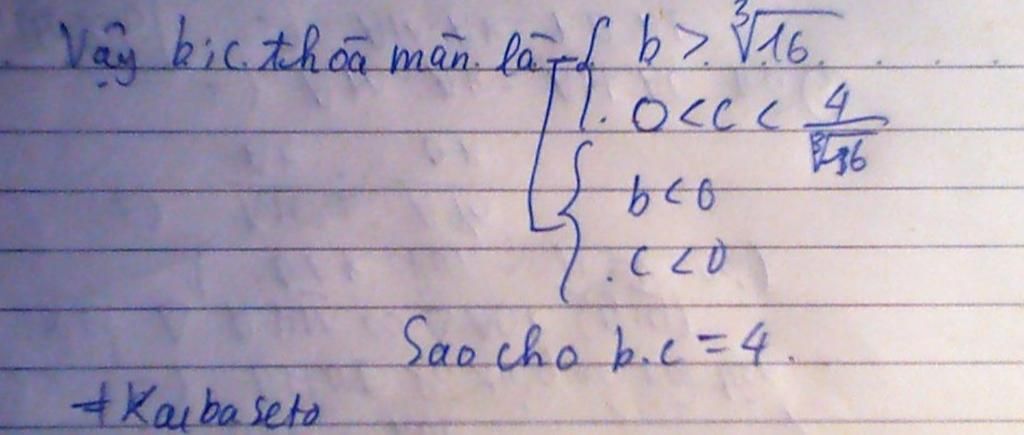 Vậy b;c thoã mãn là b > ∛16
0 < c < 4/∛16
b < 0
c < 0
Sao cho b.c = 4.
+ Kaibaseto